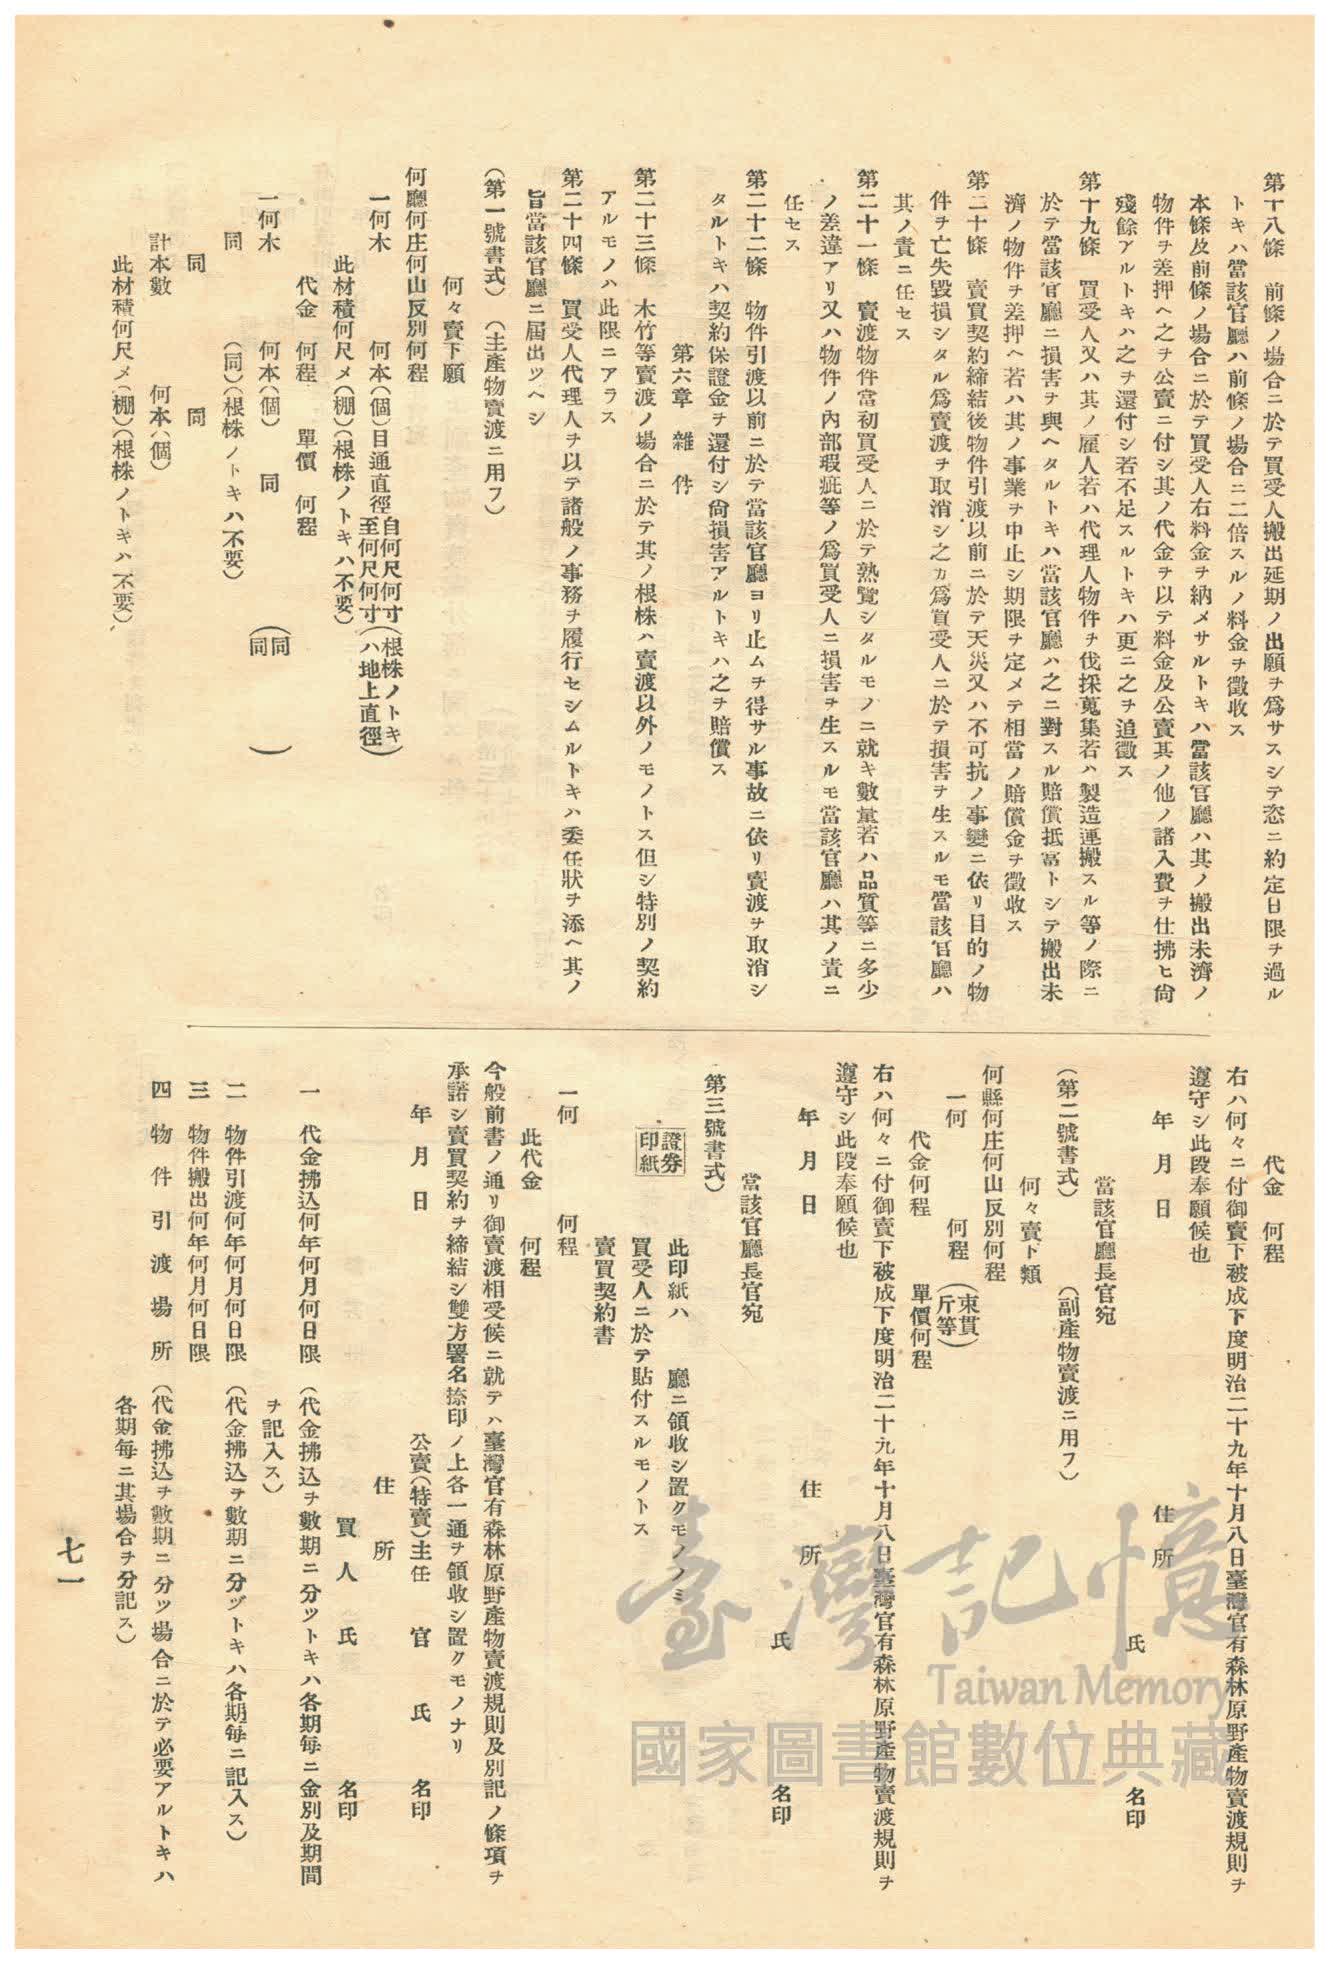 第十八條　前條ノ場合ニ於テ買受人搬出延期ノ出願ヲ爲サスシテ恣ニ約定日限ヲ過ル
トキハ當該官廳ハ前條ノ場合ニ二倍スルノ料金ヲ徵收ス
本條及前條ノ場合ニ於テ買受人右料金ヲ納メサルトキハ當該官廳ハ其ノ搬出未濟ノ
物件ヲ差押ヘ之ヲ公賣ニ付シ其ノ代金ヲ以テ料金及公賣其ノ他ノ諸入費ヲ仕拂ヒ尙
殘餘アルトキハ之ヲ還付シ若不足スルトキハ更ニ之ヲ追徵ス
第十九條　買受人又ハ其ノ雇人若ハ代理人物件ヲ伐採蒐集若ハ製造運搬スル等ノ際ニ
於テ當該官廳ニ損害ヲ與ヘタルトキハ當該官廳ハ之ニ對スル賠償抵當トシテ搬出未
濟ノ物件ヲ差押ヘ若ハ其ノ事業ヲ中止シ期限ヲ定メテ相當ノ賠償金ヲ徵收ス
第二十條　賣買契約締結後物件引渡以前ニ於テ天災又ハ不可抗ノ事變ニ依リ目的ノ物
件ヲ亡失毀損シタル爲賣渡ヲ取消シ之カ爲買受人ニ於テ損害ヲ生スルモ當該官廳ハ
其ノ責ニ任セス
第二十一條　賣渡物件當初買受人ニ於テ熟覽シタルモノニ就キ數量若ハ品質等ニ多少
ノ差違アリ又ハ物件ノ內部瑕疵等ノ爲買受人ニ損害ヲ生スルモ當該官廳ハ其ノ責ニ
任セス
第二十二條　物件引渡以前ニ於テ當該官廳ヨリ止ムヲ得サル事故ニ依リ賣渡ヲ取消シ
タルトキハ契約保證金ヲ還付シ尙損害アルトキハ之ヲ賠償ス
第六章　雜件
第二十三條　木竹等賣渡ノ場合ニ於テ其ノ根株ハ賣渡以外ノモノトス但シ特別ノ契約
アルモノハ此限ニアラス
第二十四條　買受人代理人ヲ以テ諸般ノ事務ヲ履行セシムルトキハ委任狀ヲ添ヘ其ノ
旨當該官廳ニ屆出ツヘシ
（第一號書式）（主產物賣渡ニ用フ）
何々賣下願
何廳何庄何山反別何程
一何木　何本（個）目通直徑自何尺何寸至何尺何寸（根株ノトキハ地上直徑）
此材積何尺メ（棚）（根株ノトキハ不要）
代金　何程　單價　何程
一何木　何本（個）　同　（同同）
同　（同）（根株ノトキハ不要）
同　同
計本數　何本（個）
此材積何尺メ（棚）（根株ノトキハ不要）
代金　何程
右ハ何々ニ付御賣下被成下度明治二十九年十月八日臺灣官有森林原野產物賣渡規則ヲ
遵守シ此段奉願候也
年　月　日　住所　氏　名印
當該官廳長官宛
（第二號書式）　（副產物賣渡ニ用フ）
何々賣下類
何縣何庄何山反別何程
一何　何程（束貫斤等）
代金何程　單價何程
右ハ何々ニ付御賣下被成下度明治二十九年十月八日臺灣官有森林原野產物賣渡規則ヲ
遵守シ此段奉願候也
年　月　日　住　所　氏　名印
當該官廳長官宛
（第三號書式）
證券印紙　此印紙ハ　廳ニ領收シ置クモノノミ
買受人ニ於テ貼付スルモノトス
賣買契約書
一何　何程
此代金　何程
今般前書ノ通リ御賣渡相受候ニ就テハ臺灣官有森林原野產物賣渡規則及別記ノ條項ヲ
承諾シ賣買契約ヲ締結シ雙方署名捺印ノ上各一通ヲ領收シ置クモノナリ
年　月　日　公賣（特賣）主任　官　氏　名印
住　所
買　人　氏　名印
一　代金拂込何年何月何日限　（代金拂込ヲ數期ニ分ツトキハ各期每ニ金別及期間
ヲ記入ス）
二　物件引渡何年何月何日限　（代金拂込ヲ數期ニ分ツトキハ各期每ニ記入ス）
三　物件搬出何年何月何日限
四　物件引渡場所　（代金拂込ヲ數期ニ分ツ場合ニ於テ必要アルトキハ
各期每ニ其場合ヲ分記ス）
七一
臺灣記憶
Taiwan Memory
國家圖書館數位典藏